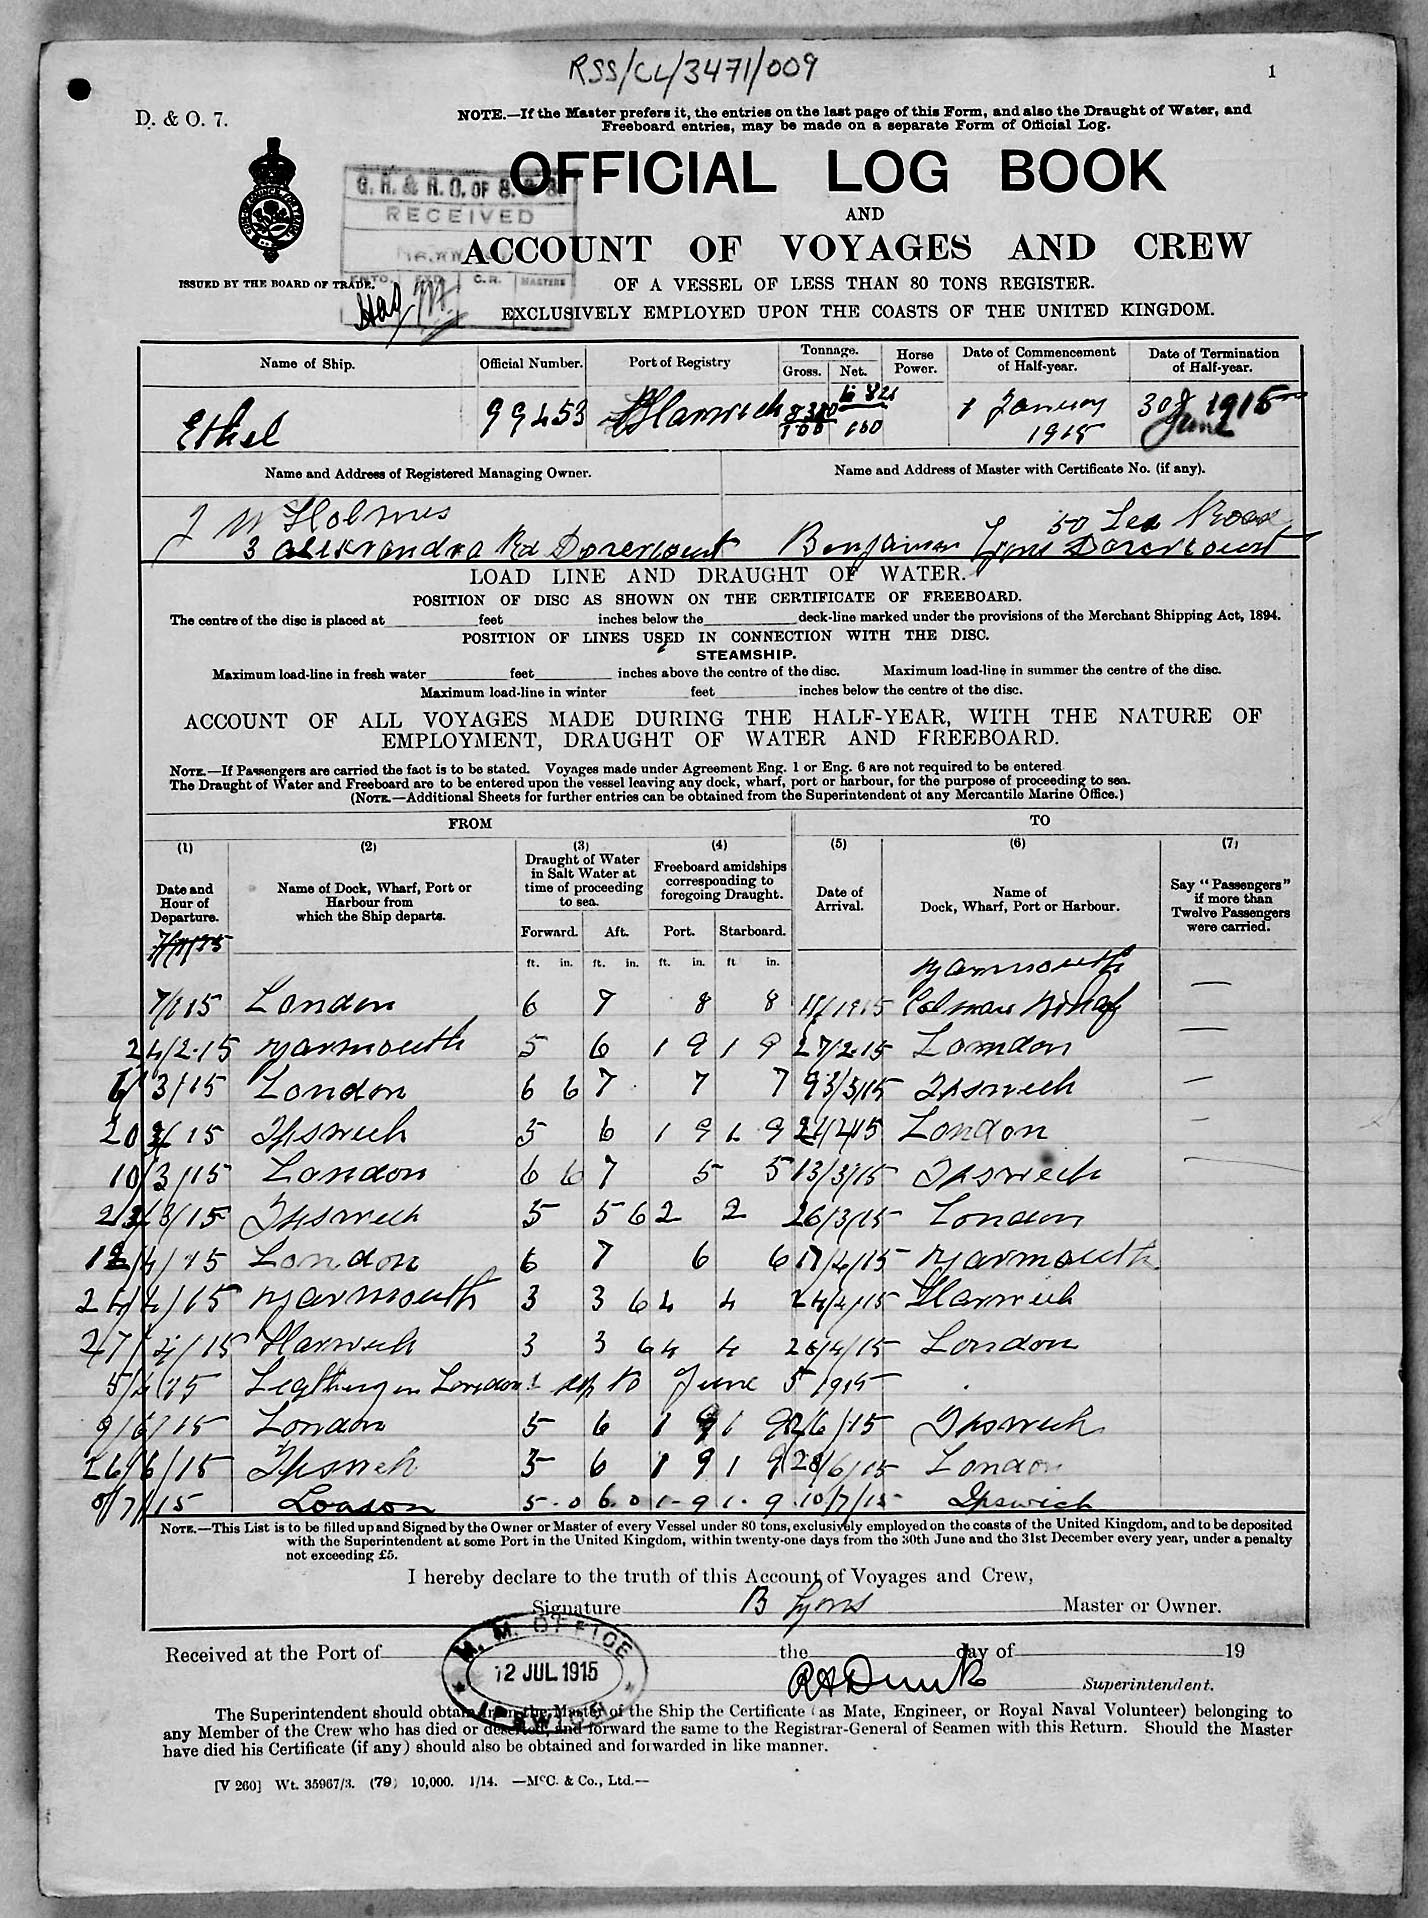 RSS/CL/3471/009
1
D. & O. 7.
NOTE.—If the Master prefers it, the entries on the last page of this Form, and also the Draught of Water, and
Freeboard entries, may be made on a separate Form of Official Log.
OFFICIAL LOG BOOK
G. R. & R. O. OF S. & S.
RECEIVED
AND
ACCOUNT OF VOYAGES AND CREW
C.R. MASTERS
ISSUED BY THE BOARD OF TRADE.
OF A VESSEL OF LESS THAN 80 TONS REGISTER.
EXCLUSIVELY EMPLOYED UPON THE COASTS OF THE UNITED KINGDOM.
Name of Ship. Official Number. Port of Registry Tonnage. Gross. Net. Horse Power. Date of Commencement of Half-year. Date of Termination of Half-year.
Ethel 99453 Harwich 1 January 1915 30 June 1915
Name and Address of Registered Managing Owner. Name and Address of Master with Certificate No. (if any).
J W Holmes 50 Lea Road
3 Alexandra Rd Dovercourt Benjamin Lyons Dovercourt
LOAD LINE AND DRAUGHT OF WATER.
POSITION OF DISC AS SHOWN ON THE CERTIFICATE OF FREEBOARD.
The centre of the disc is placed at feet inches below the deck-line marked under the provisions of the Merchant Shipping Act, 1894.
POSITION OF LINES USED IN CONNECTION WITH THE DISC.
STEAMSHIP.
Maximum load-line in fresh water feet inches above the centre of the disc. Maximum load-line in summer the centre of the disc.
Maximum load-line in winter feet inches below the centre of the disc.
ACCOUNT OF ALL VOYAGES MADE DURING THE HALF-YEAR, WITH THE NATURE OF
EMPLOYMENT, DRAUGHT OF WATER AND FREEBOARD.
NOTE.—If Passengers are carried the fact is to be stated. Voyages made under Agreement Eng. 1 or Eng. 6 are not required to be entered
The Draught of Water and Freeboard are to be entered upon the vessel leaving any dock, wharf, port or harbour, for the purpose of proceeding to sea.
(NOTE.—Additional Sheets for further entries can be obtained from the Superintendent of any Mercantile Marine Office.)
FROM TO
(1) (2) (3) (4) (5) (6) (7)
Date and Hour of Departure. Name of Dock, Wharf, Port or Harbour from which the Ship departs. Draught of Water in Salt Water at time of proceeding to sea. Freeboard amidships corresponding to foregoing Draught. Date of Arrival. Name of Dock, Wharf, Port or Harbour. Say "Passengers" if more than Twelve Passengers were carried.
Forward. Aft. Port. Starboard.
ft. in. ft. in. ft. in. ft in.
Yarmouth
7/1/15 London 6 7 8 8 Colman Wharf —
24/2.15 Yarmouth 5 6 1 9 1 9 27/2.15 London —
6/3/15 London 6 6 7 7 7 Ipswich —
Ipswich 5 6 1 9 1 9 London —
10/3/15 London 6 6 7 5 5 13/3/15 Ipswich —
Ipswich 5 5 6 2 2 26/3/15 London
12/4/15 London 6 7 6 6 17/4/15 Yarmouth
Yarmouth 3 3 6 4 4 24/4/15 Harwich
27/4/15 Harwich 3 3 6 4 4 London
London up to June 5 1915
9/6/15 London 5 6 1 9 1 9 Ipswich
26/6/15 Ipswich 5 6 1 9 1 9 28/6/15 London
8/7/15 London 5-0 6.0 1-9 1.9 10/7/15 Ipswich
NOTE.—This List is to be filled up and Signed by the Owner or Master of every Vessel under 80 tons, exclusively employed on the coasts of the United Kingdom, and to be deposited
with the Superintendent at some Port in the United Kingdom, within twenty-one days from the 30th June and the 31st December every year, under a penalty
not exceeding £5.
I hereby declare to the truth of this Account of Voyages and Crew,
Signature B Lyons Master or Owner.
M. M. OFFICE
12 JUL 1915
IPSWICH
Received at the Port of the day of 19
Superintendent.
The Superintendent should obtain from the Master of the Ship the Certificate (as Mate, Engineer, or Royal Naval Volunteer) belonging to
any Member of the Crew who has died or deserted, and forward the same to the Registrar-General of Seamen with this Return. Should the Master
have died his Certificate (if any) should also be obtained and forwarded in like manner.
[V 260] Wt. 35967/3. (79) 10,000. 1/14. —McC. & Co., Ltd.—